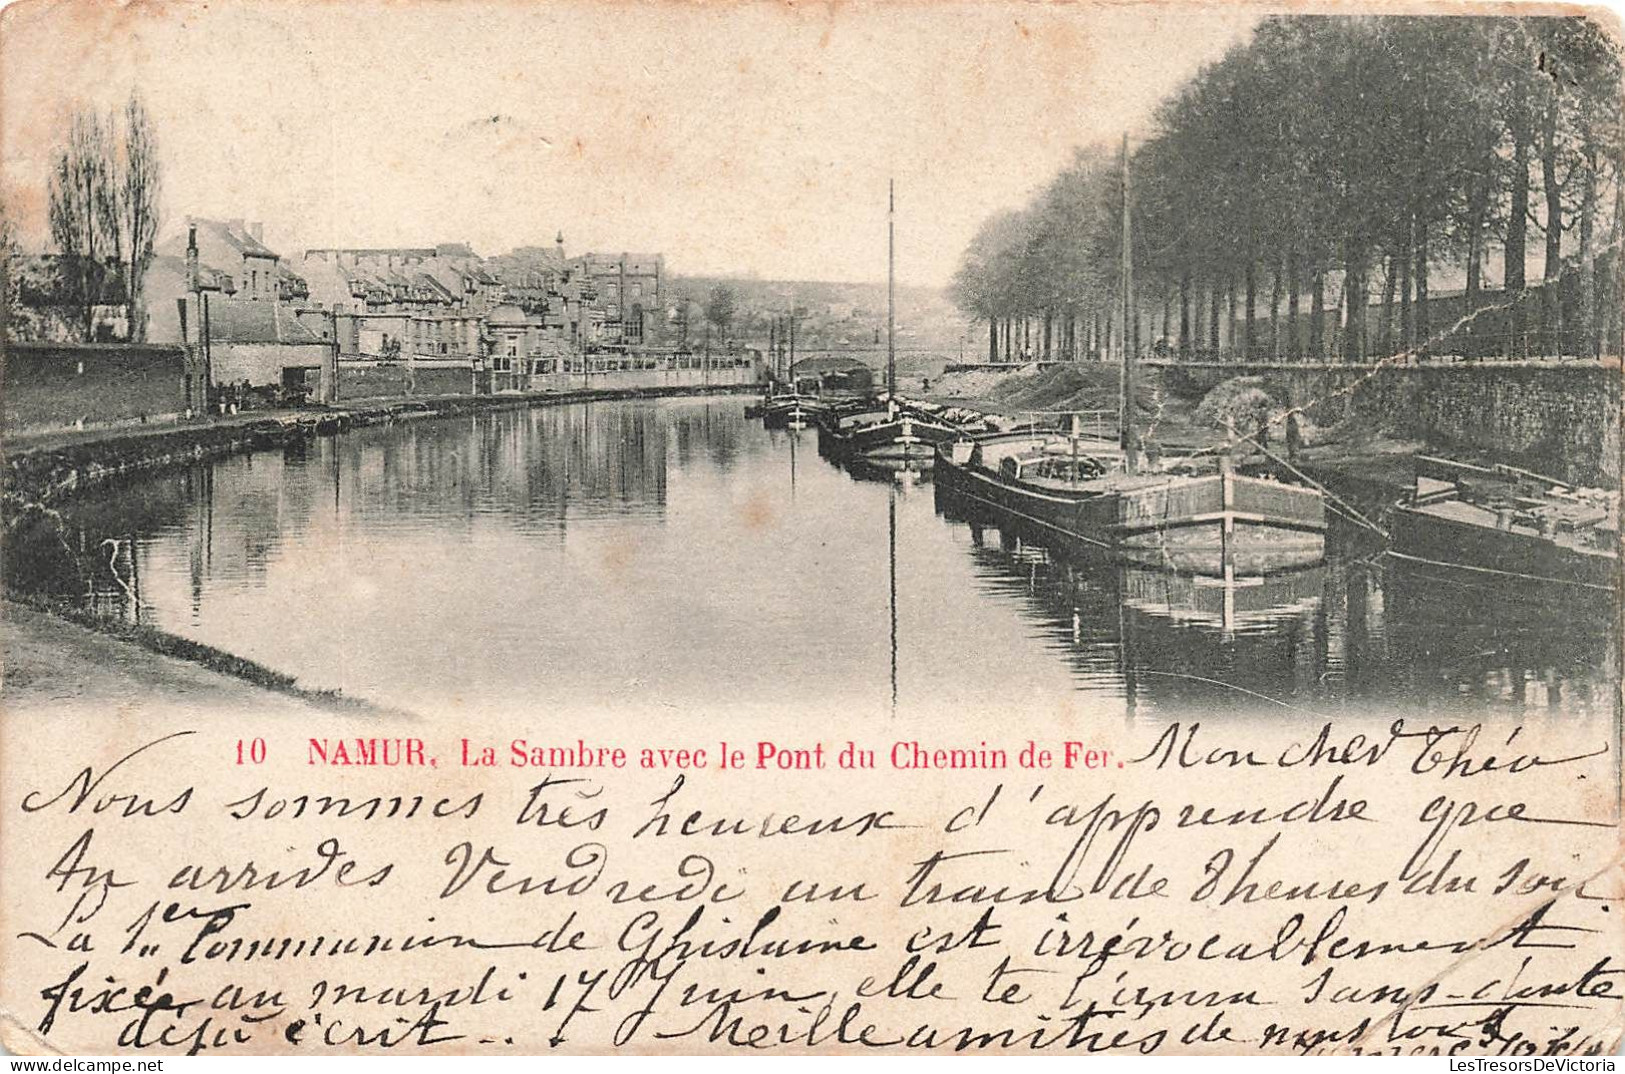 10 NAMUR. La Sambre avec le Pont du Chemin de Fer.
Mon cher Théo
Nous sommes très heureux d'apprendre que
tu arrives Vendredi au train de 8 heures du soir
La 1er Communion de Ghislaine est irrévocablement
fixée au mardi 17 Juin, elle te l'aura sans-doute
déjà écrit... Meille amitiés de nous tous
LesTresorsDeVictoria